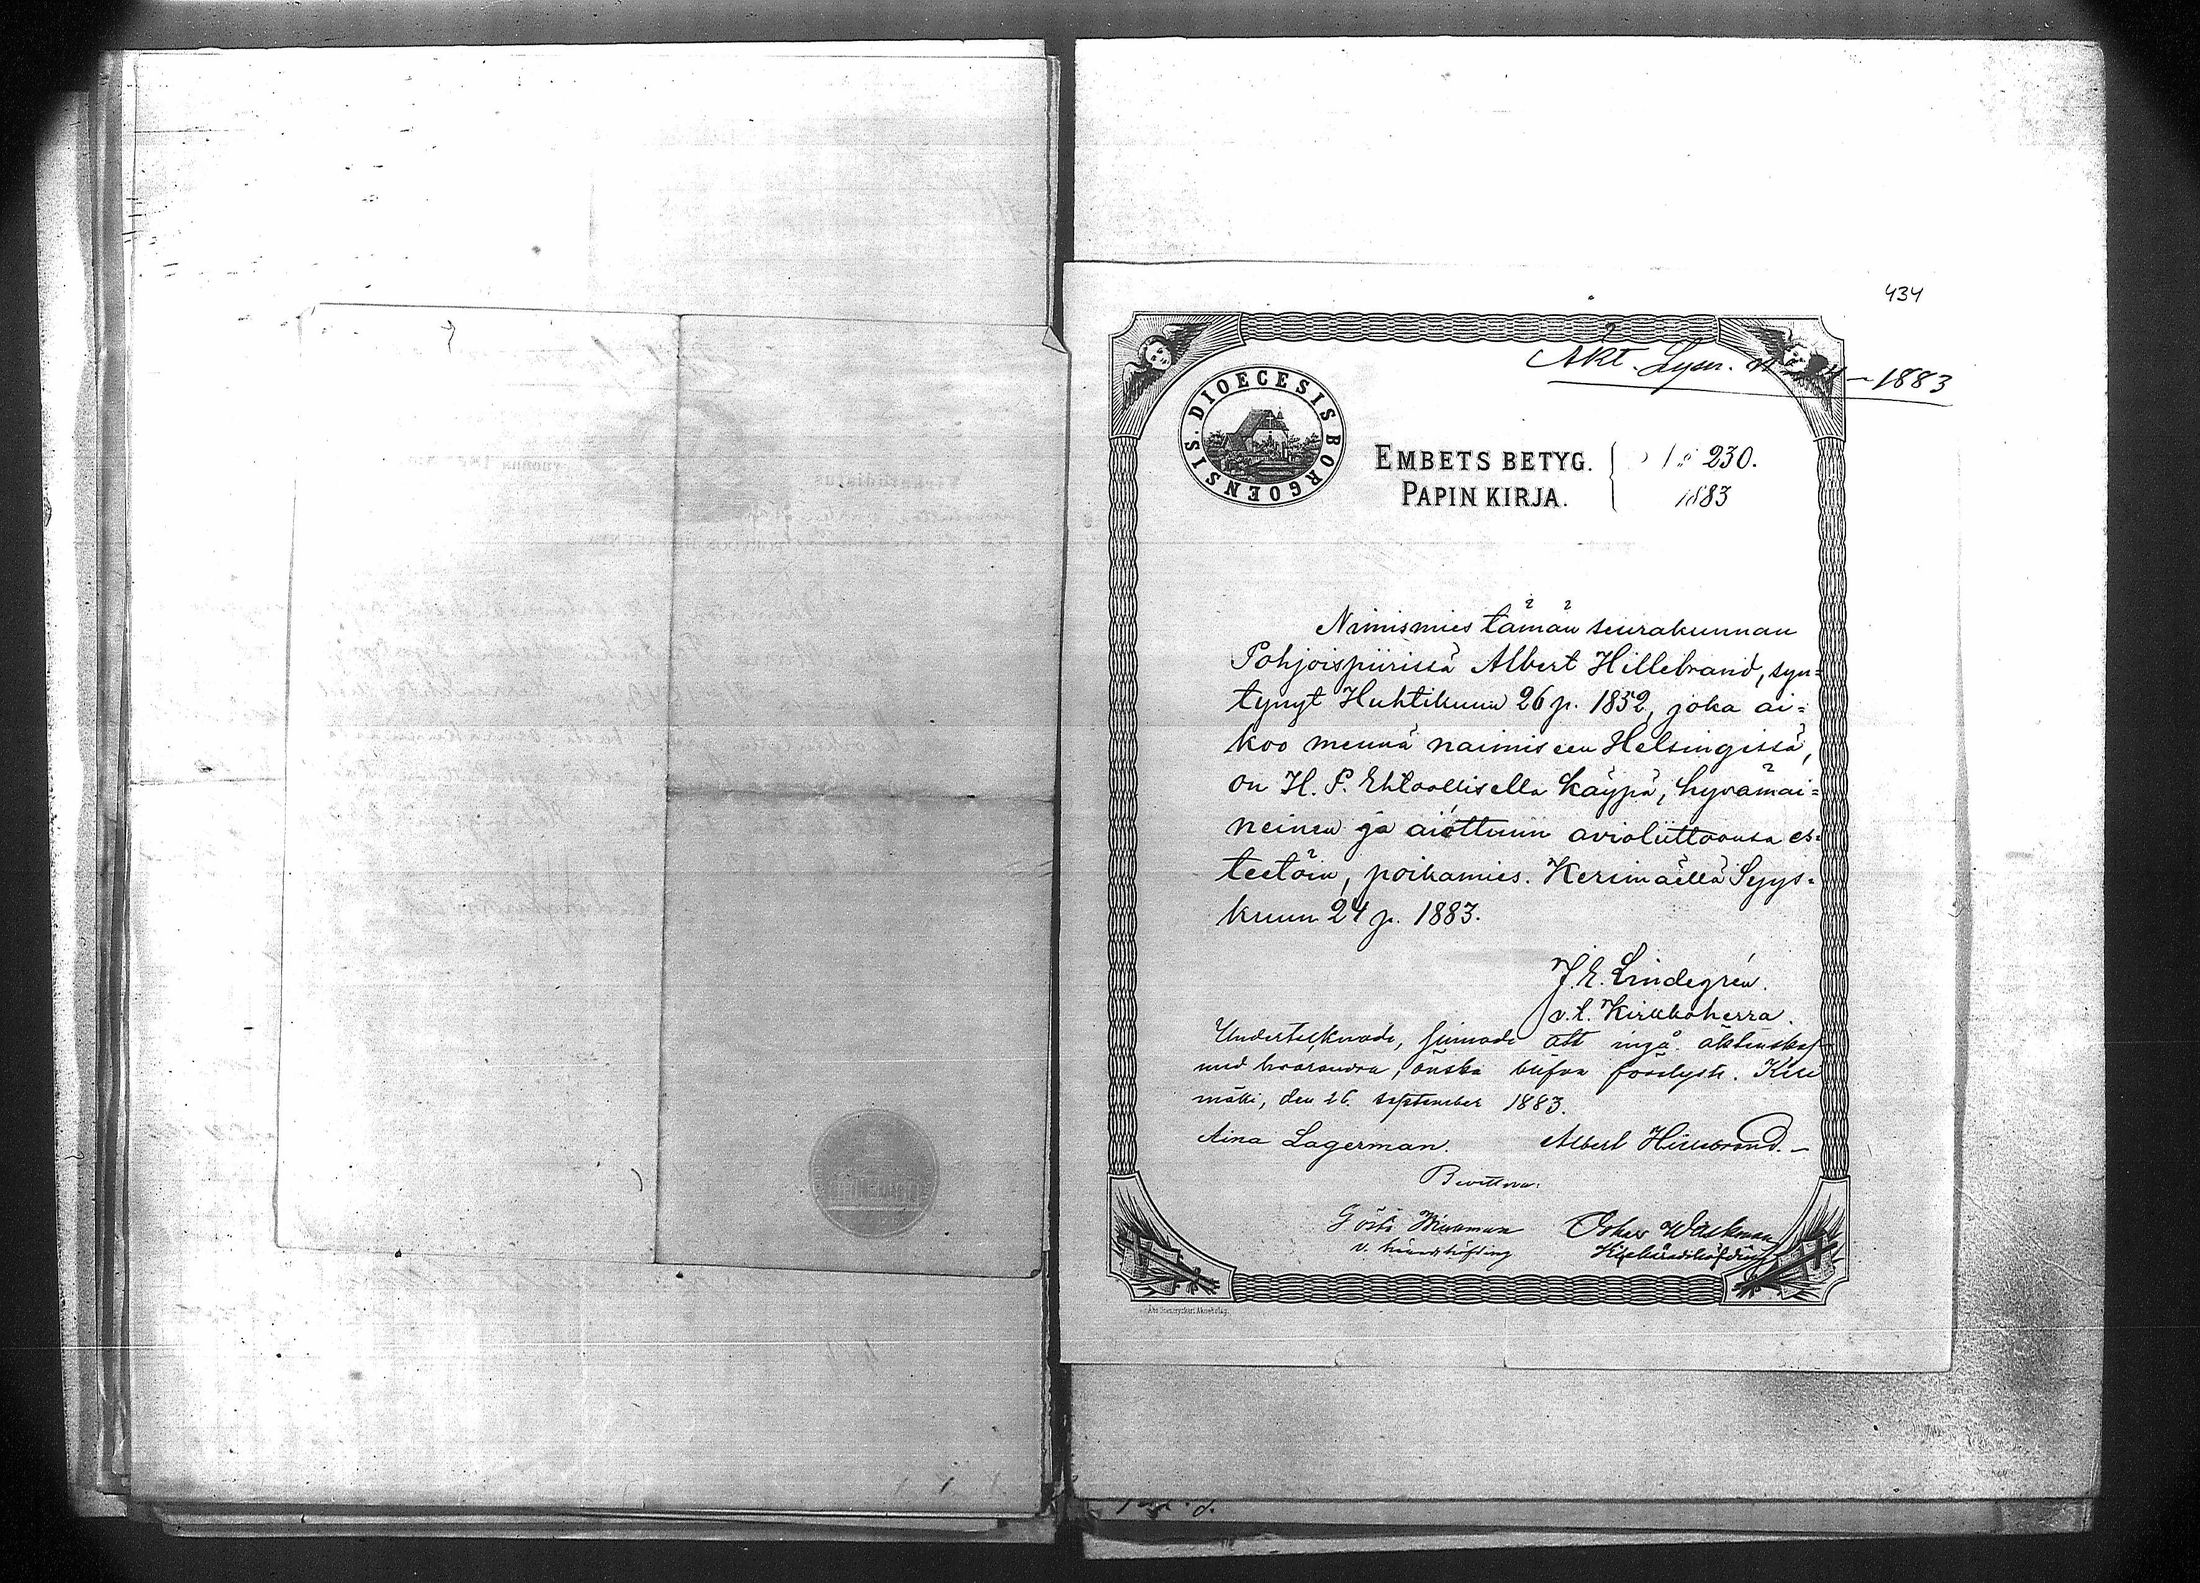 434
Akt. Lysn. 1883
DIOECESIS BORGOENSIS
EMBETS BETYG. 230.
PAPIN KIRJA. 1883
Nimismies tämän seurakunnan
Pohjoispiirissä Albert Hillebrand, syn=
tynyt Huhtikuun 26 p. 1852, joka ai=
koo mennä naimiseen Helsingissä,
on H. P. Ehtoollisella käypä, hyvämai=
neinen ja aiottuun avioliittoonsa es=
teetöin, poikamies. Kerimäellä Syys=
kuun 24 p. 1883.
J. E. Lindegrén.
v. t. Kirkkoherra.
Undertecknade, sinnade att ingå äktenskap
med hvarandra, önska blifva förelyste. Keri
mäki, den 26. September 1883.
Aina Lagerman. Albert Hillebrand.
Bevittna:
Gösta Oskar
v. häradshöfding
Åbo Stentryckeri Aktiebolag.